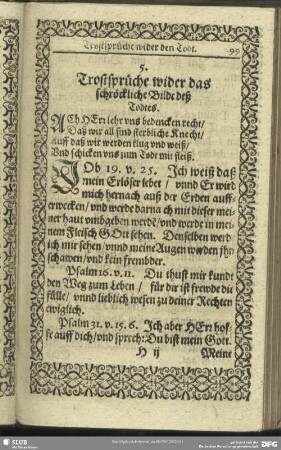 Trostsprüche wider den Todt. 99
5.
Trostsprüche wider das
schröckliche Bilde deß
Todtes.
ACh HErr lehr vns bedencken recht/
Daß wir all sind sterbliche Knecht/
Auff daß wir werden klug vnd weiß/
Vnd schicken vns zum Todt mit fleiß.
JOb 19. v. 25. Ich weiß daß
mein Erlöser lebet / vnnd Er wird
mich hernach auß der Erden auff-
erwecken/ vnd werde darnach mit dieser mei-
ner haut vmbgeben werdē/ vnd werde in mei-
nem Fleisch GOtt sehen. Denselben werd
ich mir sehen/ vnnd meine Augen werden jhn
schawen/ vnd kein frembder.
Psalm 16. v. 11. Du thust mir kundt
den Weg zum Leben / für dir ist frewde die
fülle/ vnnd lieblich wesen zu deiner Rechten
ewiglich.
Psalm 31. v. 15. 6. Ich aber HErr hof-
fe auff dich/ vnd sprech: Du bist mein Gott.
H ij Meine
SLUB
DFG